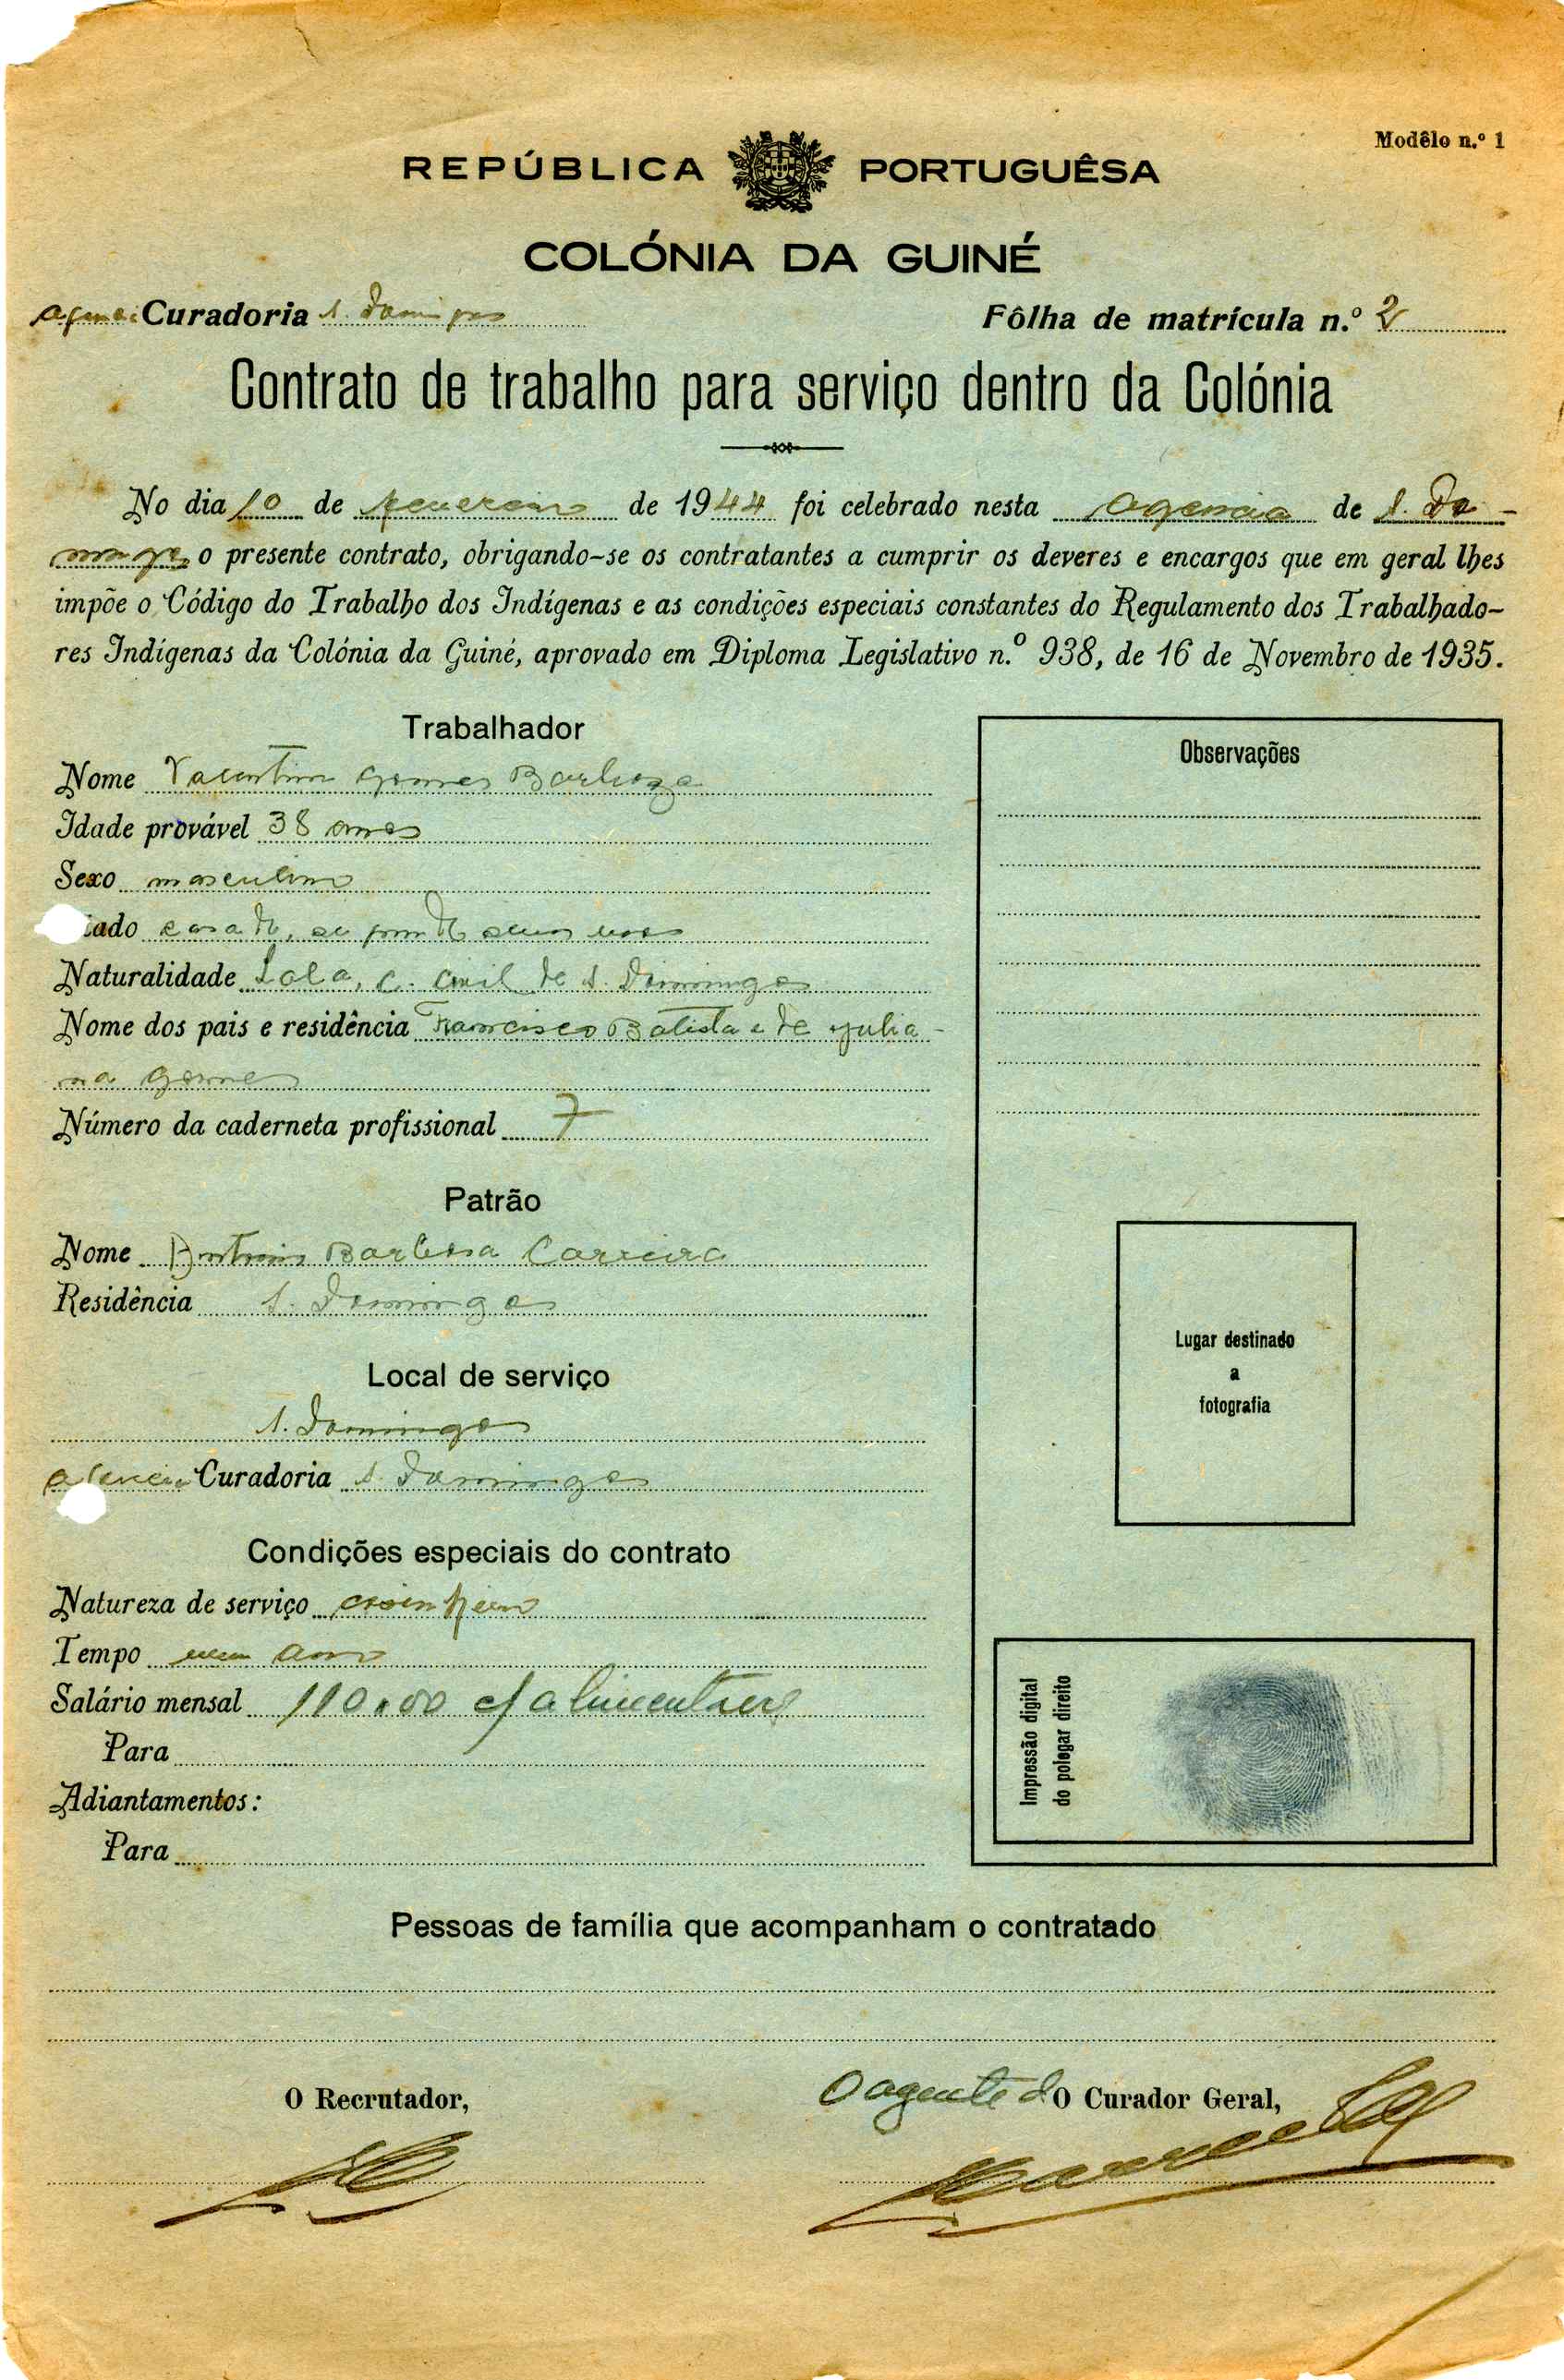 Modêlo n.º 1
REPÚBLICA PORTUGUÊSA
COLÓNIA DA GUINÉ
Curadoria S. Domingos Fôlha de matrícula n.º 2
Contrato de trabalho para serviço dentro da Colónia
No dia 10 de fevereiro de 1944 foi celebrado nesta Agencia de S. Do-
mingos o presente contrato, obrigando-se os contratantes a cumprir os deveres e encargos que em geral lhes
impõe o Código do Trabalho dos Indígenas e as condições especiais constantes do Regulamento dos Trabalhado-
res Indígenas da Colónia da Guiné, aprovado em Diploma Legislativo n.º 938, de 16 de Novembro de 1935.
Trabalhador
Nome Gomes Barboza
Idade provável 38 anos
Sexo masculino
tado casado, segundo seus usos
Naturalidade C. Civil de S. Domingos
Nome dos pais e residência Francisco Batista e de Julia-
na Gomes
Número da caderneta profissional 7
Patrão
Nome Antonio Barbosa Carreira
Residência S. Domingos
Local de serviço
S. Domingos
Agencia Curadoria S. Domingos
Condições especiais do contrato
Natureza de serviço cosinheiro
Tempo um ano
Salário mensal 110$00 c/ alimentação
Para
Adiantamentos:
Para
Observações
Lugar destinado
a
fotografia
Impressão digital
do polegar direito
Pessoas de família que acompanham o contratado
O Recrutador,
O agente do O Curador Geral,